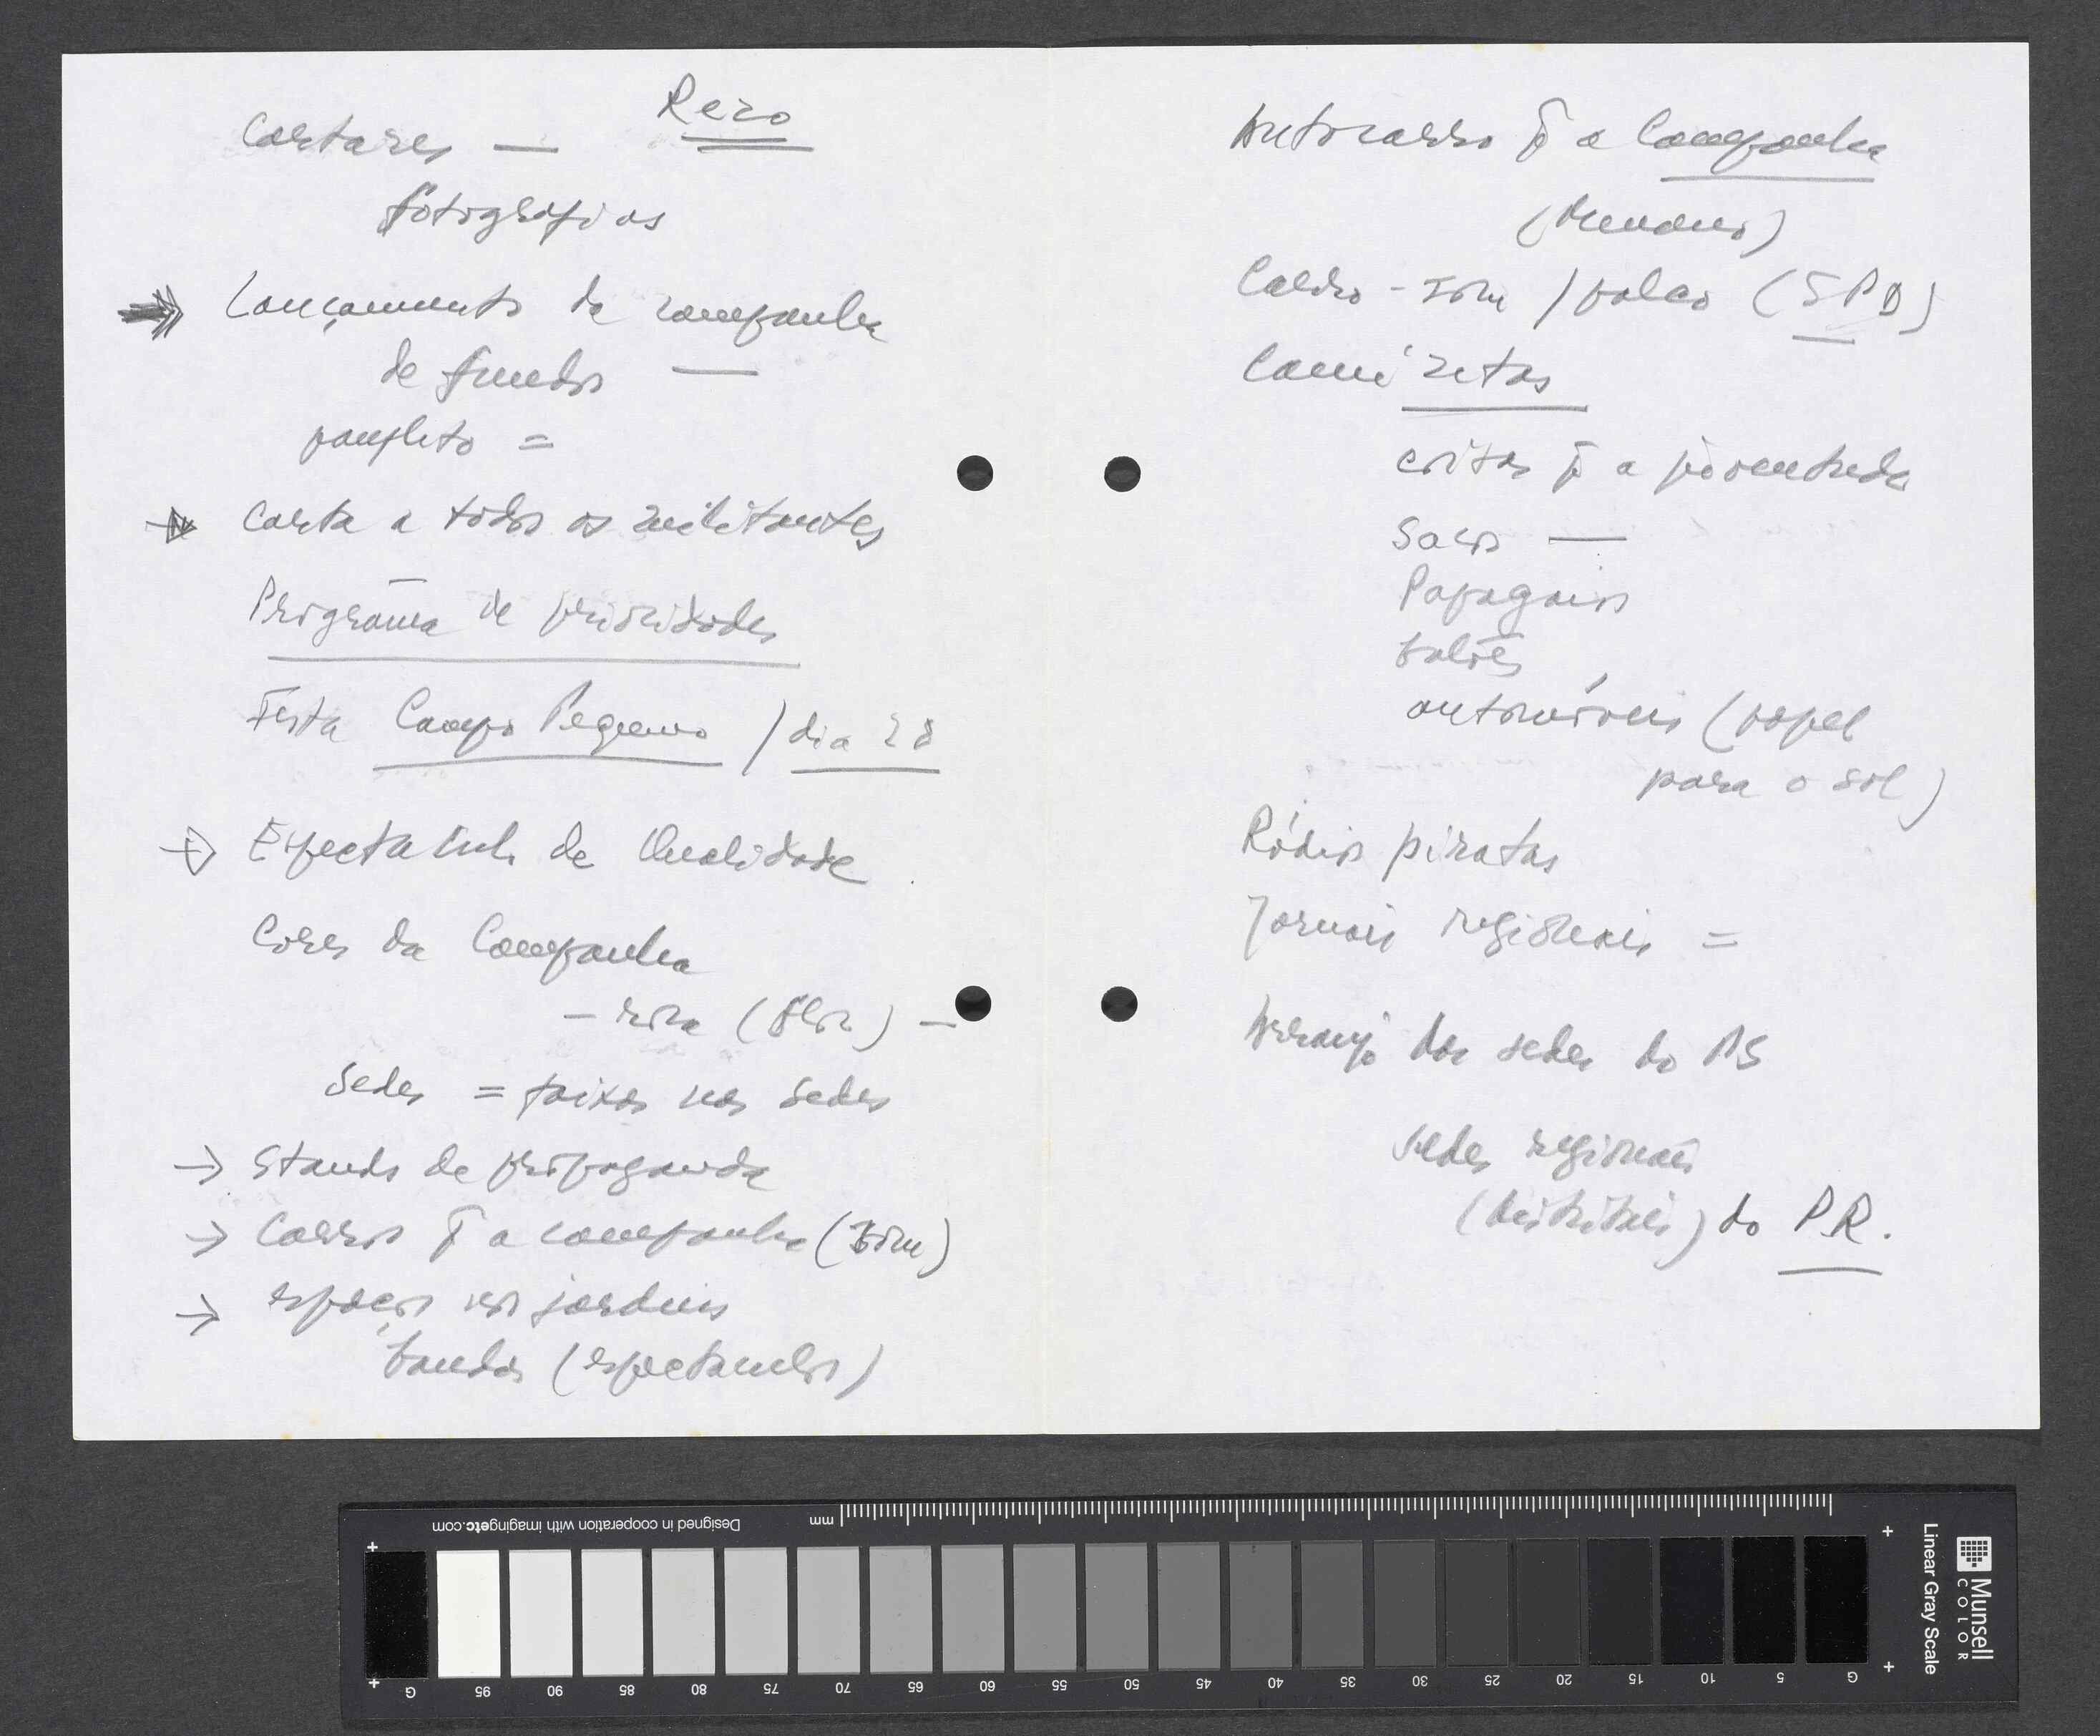 Rezo
Cartazes —
fotografias
Lançamento da campanha
de fundos —
panfleto =
Carta a todos os militantes
Programa de prioridades
Festa Campo Pequeno / dia 28
Espectaculo de Qualidade
Cores da Campanha
— rosa (flor) —
Sedes = faixas nas sedes
→ Stands de propaganda
→ Carros p̄ a campanha (som)
→ espaços nos jardins
bandas (espectaculos)
Autocarro p̄ a Campanha
Carro-som / palco (SPD)
Camisetas
coisas p̄ a juventude
Sacos —
Papagaios
balões
automóveis (papel
para o sol)
Rádios piratas
Jornais regionais =
Arranjo das sedes do PS
sedes regionais
(distritais) do P.R.
Designed in cooperation with imagingetc.com
mm
G 95 90 85 80 75 70 65 60 55 50 45 40 35 30 25 20 15 10 5 G
Linear Gray Scale
Munsell
COLOR